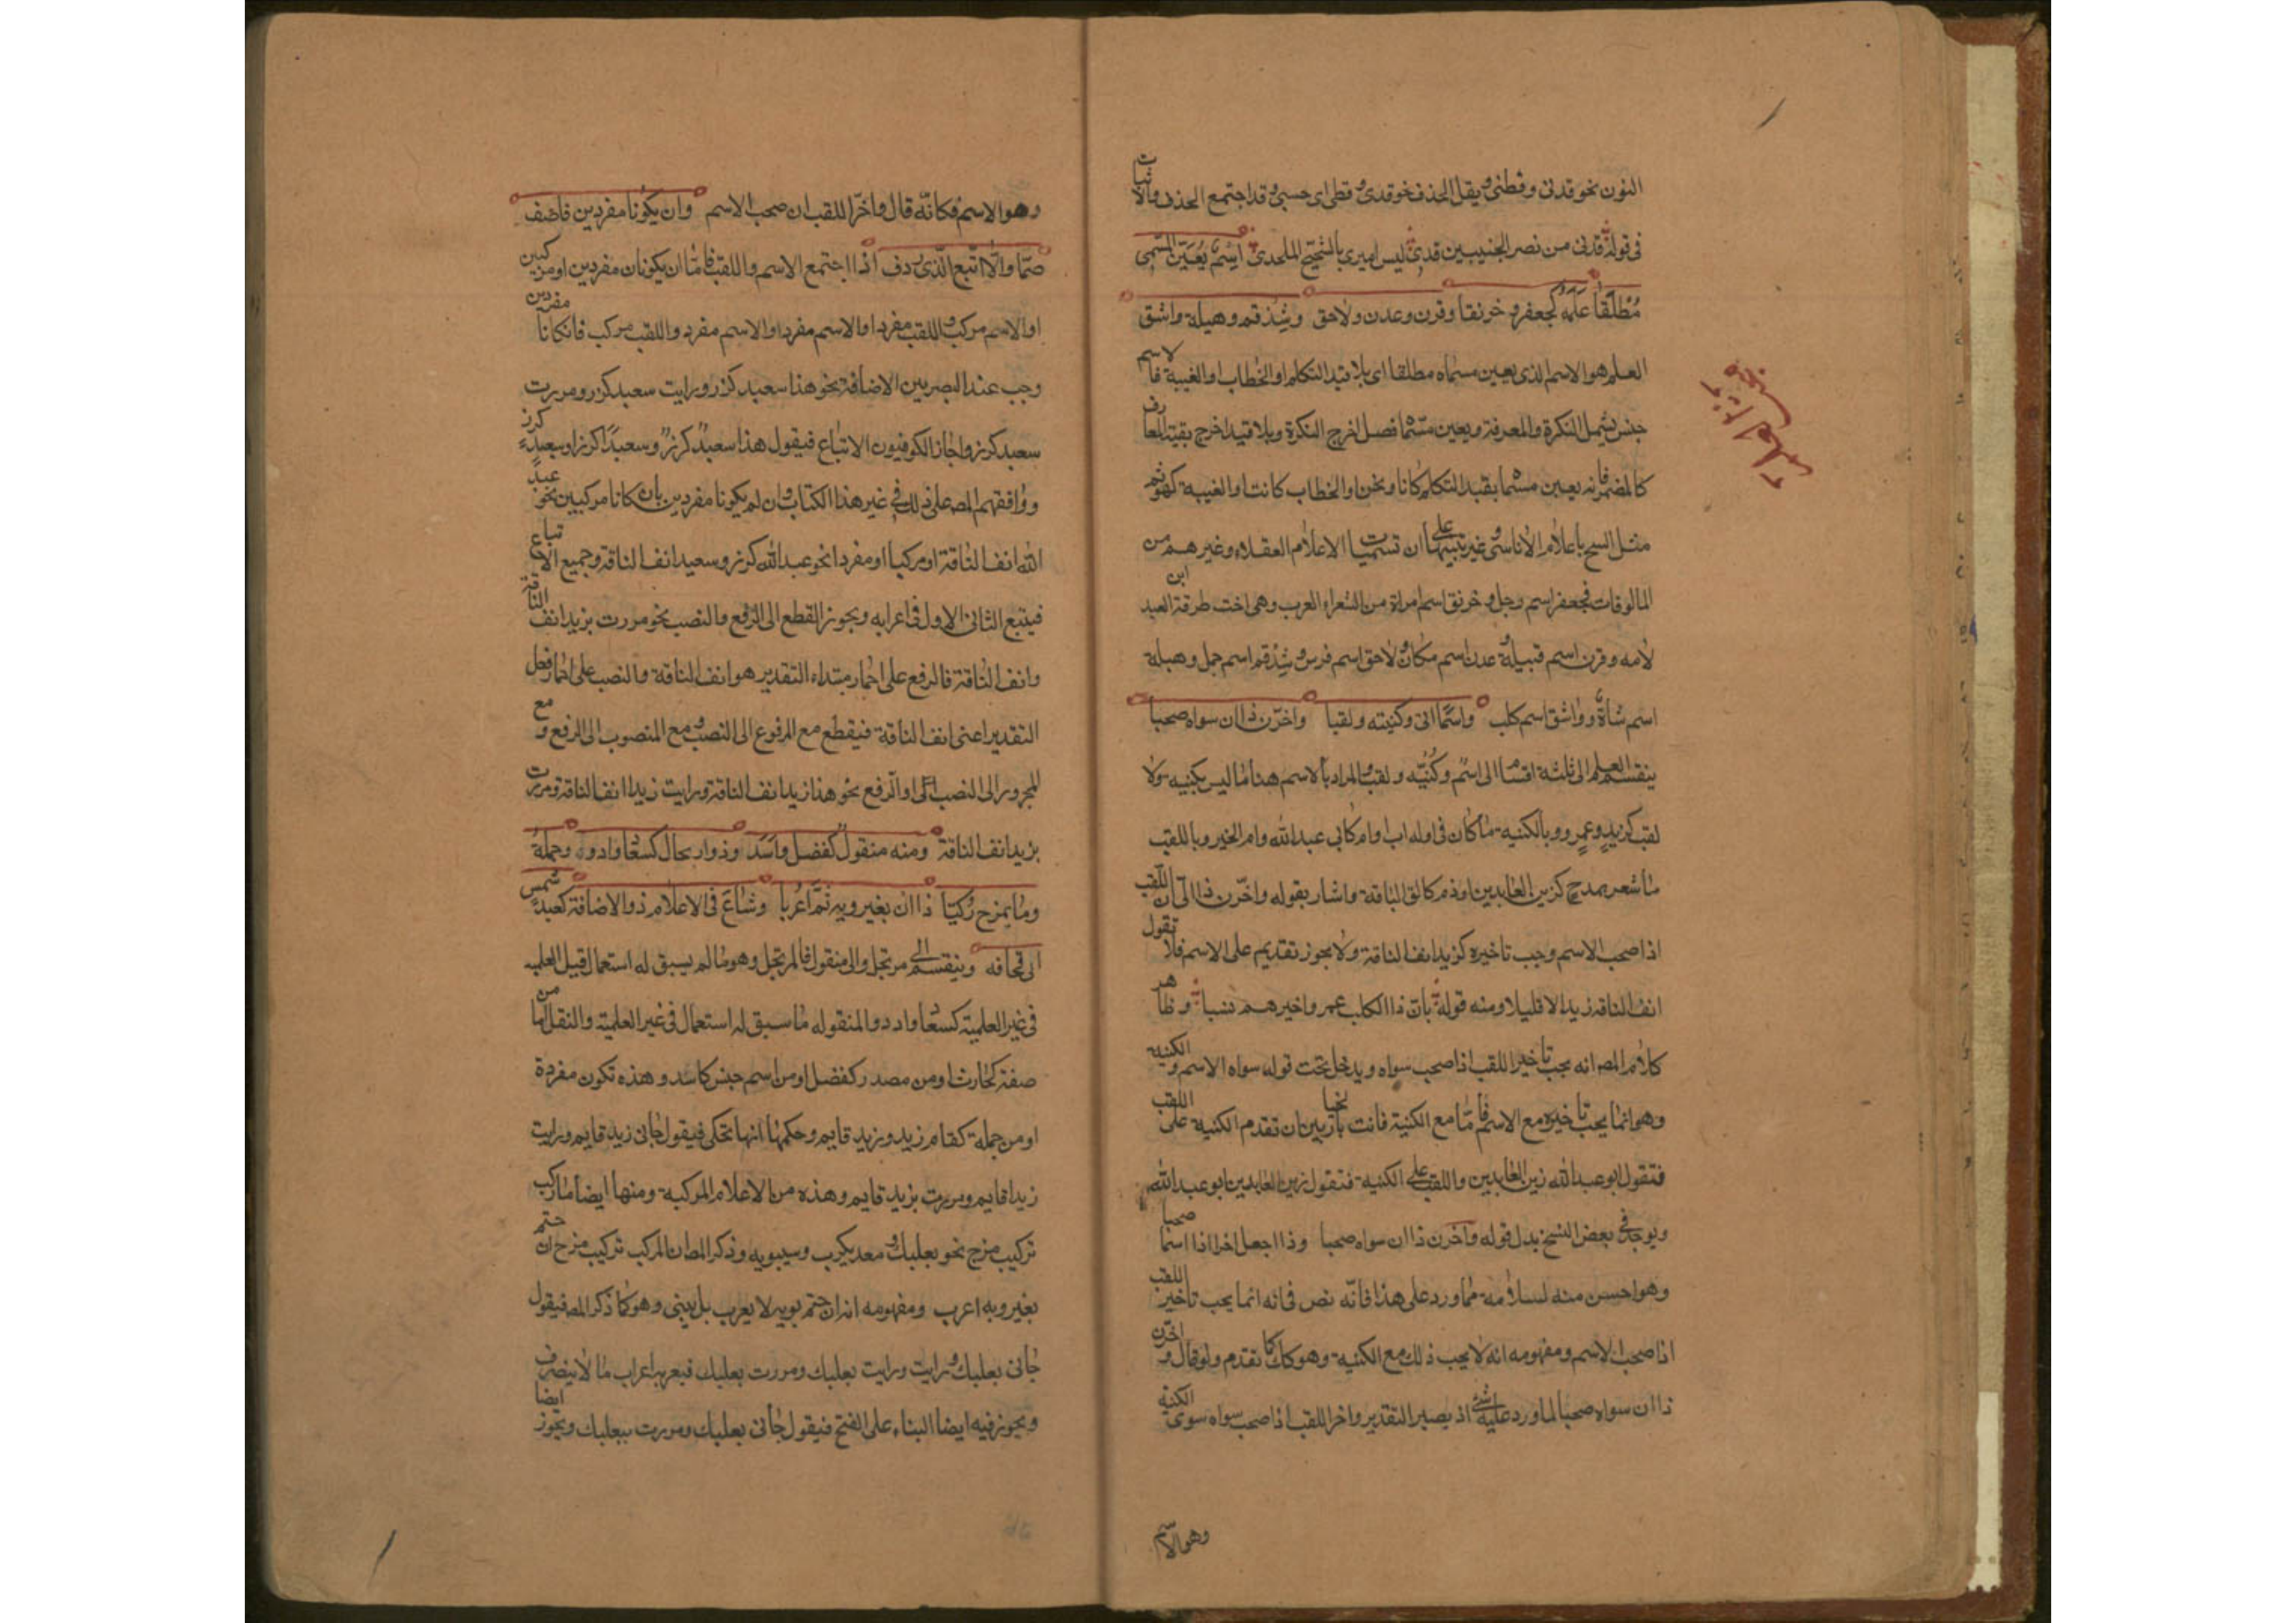 النون نحو قدنى وقطنى ويقل الحذف نحو قدى وقطى اى حسبى وقد اجتمع الحذف والاثبات
فى قوله قدنى من نصر الخبيبين قدى ليس اميرى بالشحيح الملحدى اسم يعين المسمى
مطلقا علمه كجعفر وخرنقا وقرن وعدن ولاحق وشذقم وهيلة واشق
العلم هو الاسم الذى يعين مسماه مطلقا اى بلا قيد التكلم او الخطاب او الغيبة فالاسم
جنس يشمل النكرة والمعرفة ويعين مسماه فصل اخرج النكرة وبلا قيد اخرج بقية المعارف
كالمضمر فانه يعين مسماه بقيد التكلم كانا ونحن او الخطاب كانت او الغيبة كهو ثم
مثل الشيخ باعلام الاناسى وغيرهم تنبيها على ان مسميات الاعلام العقلاء وغيرهم من
المالوفات فجعفر اسم رجل وخرنق اسم امراة من الشعراء العرب وهى اخت طرفة ابن العبد
لامه وقرن اسم قبيلة وعدن اسم مكان ولاحق اسم فرس وشذقم اسم جمل وهيلة
اسم شاة وواشق اسم كلب واسما اتى وكنيته ولقبا واخرن ذا ان سواه صحبا
ينقسم العلم الى ثلثة اقسام الى اسم وكنيه ولقب والمراد بالاسم هنا ما ليس بكنيه ولا
لقب كزيد وعمرو وبالكنيه ما كان فى اوله اب او ام كابى عبد الله وام الخير وباللقب
ما اشعر بمدح كزين العابدين او ذم كانف الناقة واشار بقوله واخرن ذا الى ان اللقب
اذا صحب الاسم وجب تاخيره كزيد انف الناقة ولا يجوز تقديم على الاسم فلا تقول
انف الناقة زيد الا قليلا ومنه قوله بان ذا الكلب عمر واخيرهم نسبا وظاهر
كلام المص انه يجب تاخير اللقب اذا صحب سواه ويدخل تحت قوله سواه الاسم والكنية
وهو انما يجب تاخيره مع الاسم فاما مع الكنية فانت بالخيار بين ان تقدم الكنية على اللقب
فتقول ابو عبد الله زين العابدين واللقب على الكنيه فتقول زين العابدين ابو عبد الله
ويوجد فى بعض النسخ بدل قوله واخرن ذا ان سواه صحبا وذا اجعل اخرا اذا اسما صحبا
وهو احسن منه لسلامته مما ورد على هذا فانه نص فى انه انما يجب تاخير اللقب
اذا صحب الاسم ومفهومه انه لا يجب ذلك مع الكنيه وهو كذلك كما تقدم ولو قال واخرن
ذا ان سواه صحبا لما ورد عليه شئ اذ يصير التقدير واخر اللقب اذا صحب سواه سوى الكنية
وهو الاسم
وهو الاسم فكانه قال واخر اللقب ان صحب الاسم وان يكونا مفردين فاضف
حتما والا اتبع الذى ردف اذا اجتمع الاسم واللقب فاما ان يكونان مفردين او مركبين
او الاسم مركب واللقب مفردا والاسم مفردا والاسم مفرد واللقب مركب فان كانا مفردين
وجب عند البصريين الاضافة نحو هذا سعيد كرز ورايت سعيد كرز ومررت
سعيد كرز واجاز الكوفيون الاتباع فيقول هذا سعيد كرز وسعيدا كرزا وسعيد كرز
ووافقهم المص على ذلك فى غير هذا الكتاب وان لم يكونا مفردين بان كانا مركبين نحو عبد
الله انف الناقة او مركبا او مفردا نحو عبد الله كرز وسعيد انف الناقة وجميع الاتباع
فيتبع الثانى الاول فى اعرابه ويجوز القطع الى الرفع والنصب نحو مررت بزيد انف الناقة
وانف الناقة فالرفع على اضمار مبتداء التقدير هو انف الناقة والنصب على اضمار فعل
التقدير اعنى انف الناقة فيقطع مع المرفوع الى النصب ومع المنصوب الى الرفع ومع
المجرور الى النصب او الرفع نحو هذا زيد انف الناقة ورايت زيدا انف الناقة ومررت
بزيد انف الناقة ومنه منقول كفضل واسد وذو ارتجال كسعاد وادد وجملة
وما بمزج ركبا ذا ان بغير ويه تم اعربا وشاع فى الاعلام ذو الاضافة كعبد شمس
ابى قحافه وينقسم الى مرتجل والى منقول فالمرتجل وهو ما لم يسبق له استعمال قبل العلميه
فى غير العلمية كسعاد وادد والمنقوله ما سبق له استعمال فى غير العلمية والنقل اما من
صفة كحارث او من مصدر كفضل او من اسم جنس كاسد وهذه تكون مفردة
او من جملة كقام زيد وزيد قايم وحكمها انها تحكى فيقول جانى زيد قايم ورايت
زيدا قايم ومررت بزيد قايم وهذه من الاعلام المركبة ومنها ايضا ما ركب
تركيب مزج نحو بعلبك ومعديكرب وسيبويه وذكر المص ان المركب تركيب مزج ان ختم
بغير ويه اعرب ومفهومه انه ان ختم بويه لا يعرب بل يبنى وهو كما ذكر المص فيقول
جانى بعلبك ورايت ورايت بعلبك ومررت بعلبك فيعربه اعراب ما لا ينصرف
ويجوز فيه ايضا البناء على الفتح فيقول جانى بعلبك ومررت ببعلبك ويجوز ايضا